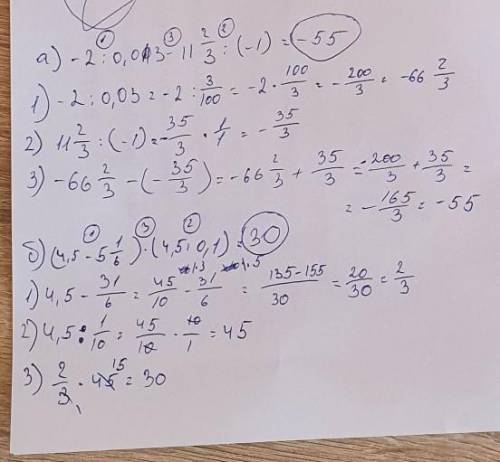 а) -2 : 0,03 - 11 2/3 : (-1) = -55
1) -2 : 0,03 = -2 : 3/100 = -2 · 100/3 = -200/3 = -66 2/3
2) 11 2/3 : (-1) = -35/3 · 1/1 = -35/3
3) -66 2/3 - (-35/3) = -66 2/3 + 35/3 = -200/3 + 35/3 =
= -165/3 = -55
б) (4,5 - 5 1/6) · (4,5 : 0,1) = 30
1) 4,5 - 31/6 = 45/10 - 31/6 = 135-155/30 = 20/30 = 2/3
2) 4,5 : 1/10 = 45/10 · 10/1 = 45
3) 2/3 · 45 = 30